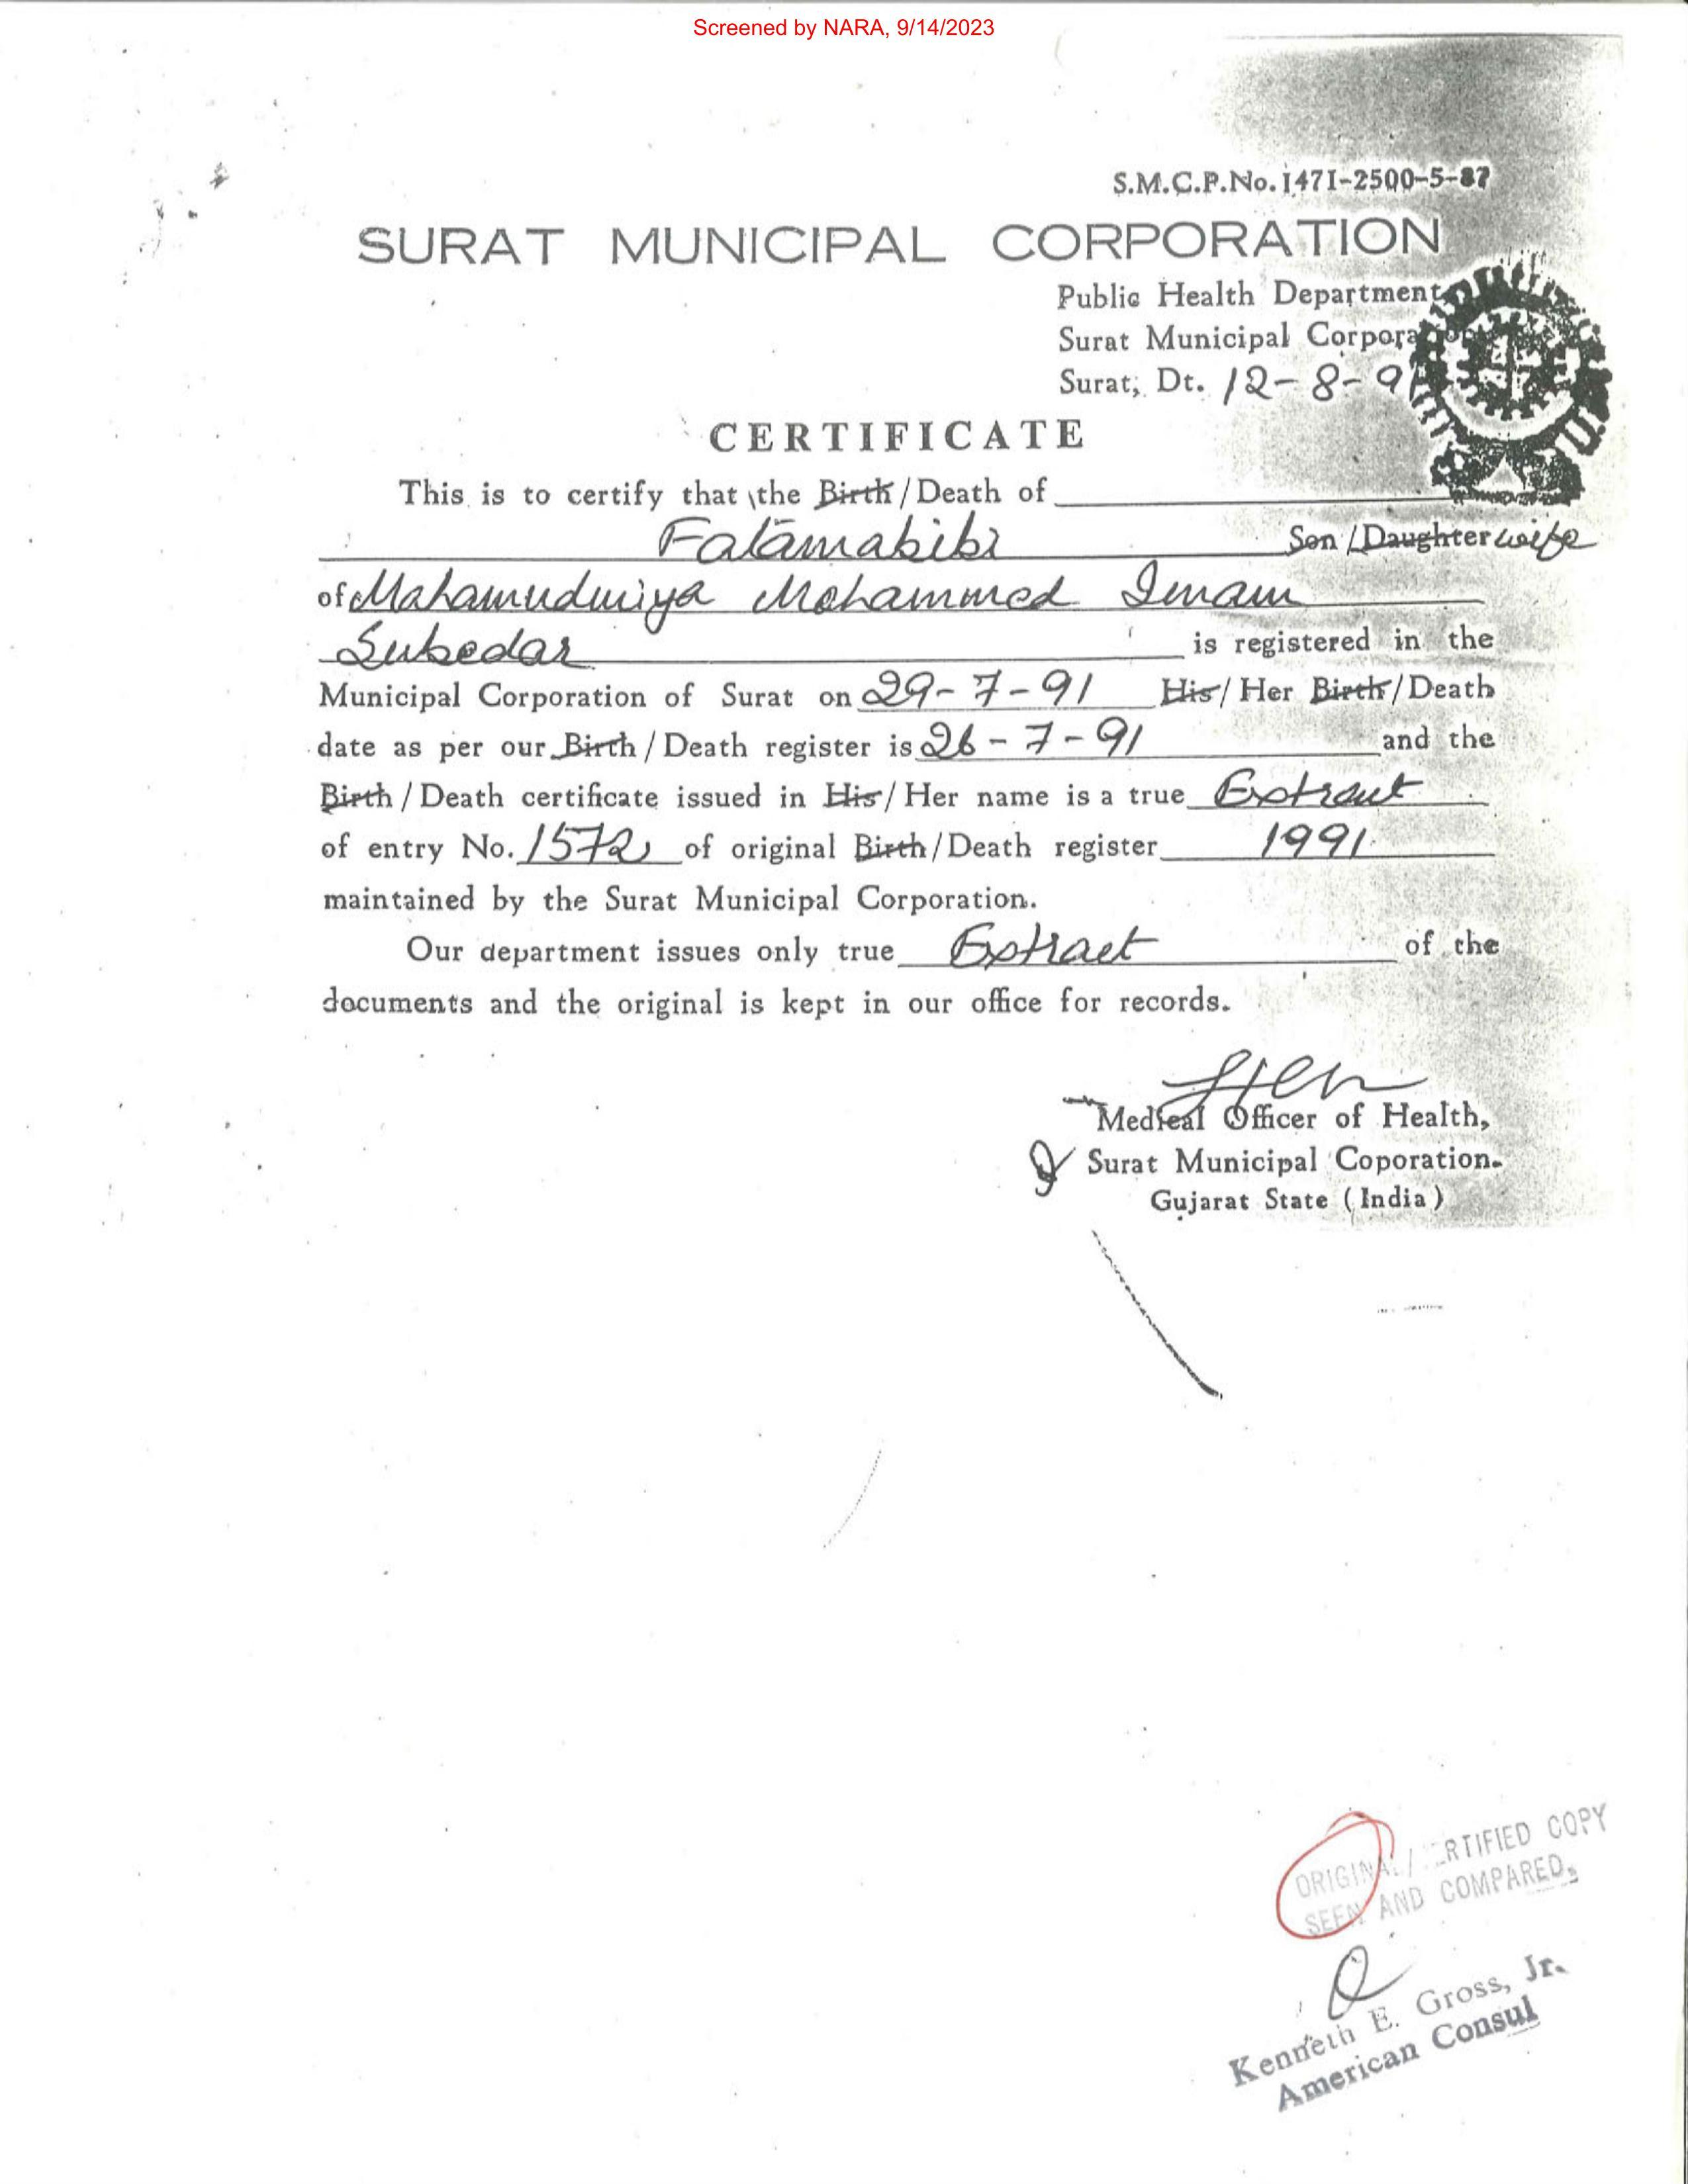 Screened by NARA, 9/14/2023
S.M.C.P.No.1471-2500-5-87
SURAT MUNICIPAL CORPORATION
Public Health Department
Surat Municipal Corpora
Surat, Dt. 12-8-9
CERTIFICATE
This is to certify that the Birth/Death of
Fatamabibi Son/Daughter wife
of Mahamudmiya Mohammed Imam
Subedar is registered in the
Municipal Corporation of Surat on 29-7-91 His/Her Birth/Death
date as per our Birth/Death register is 26-7-91 and the
Birth/Death certificate issued in His/Her name is a true Extract
of entry No. 1572 of original Birth/Death register 1991
maintained by the Surat Municipal Corporation.
Our department issues only true Extract of the
documents and the original is kept in our office for records.
Medical Officer of Health,
Surat Municipal Coporation.
Gujarat State (India)
ORIGINAL/ RTIFIED COPY
SEEN AND COMPARED.
Kenneth E. Gross, Jr.
American Consul